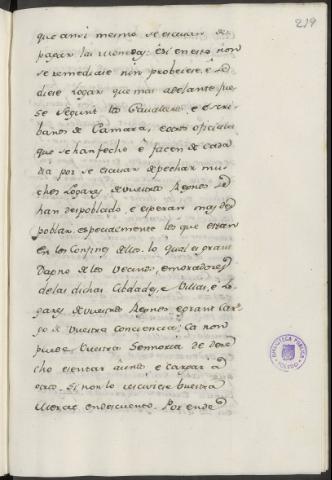 219
que ansi mesmo se escusan de
pagar las monedas: E si en esto non
se remediase nin proveiese, é se
diese logar que mas adelante fue-
se segunt los Cavalleros, e escri-
banos de Camara, e otros oficiales
que se han fecho é facen de cada
dia por se escusar de pechar mu-
chos Logares de vuestros Regnos se
han despoblado, e esperan mas des
poblar, especialmente los que estan
en los Confines dellos. lo qual es grant
Dapno de los Vecinos, e moradores
de las dichas Cibdades, e Villas, e Lo-
gares de vuestros Regnos, e grant Car-
go de Vuestra Conciencia; Ca non
puede Vuestra Sennoria de dere-
cho esentar á unos, e cargar á
otros. Si non lo resciviere Vuestra
Merced en descuento. Por ende
BIBLIOTECA PUBLICA
TOLEDO